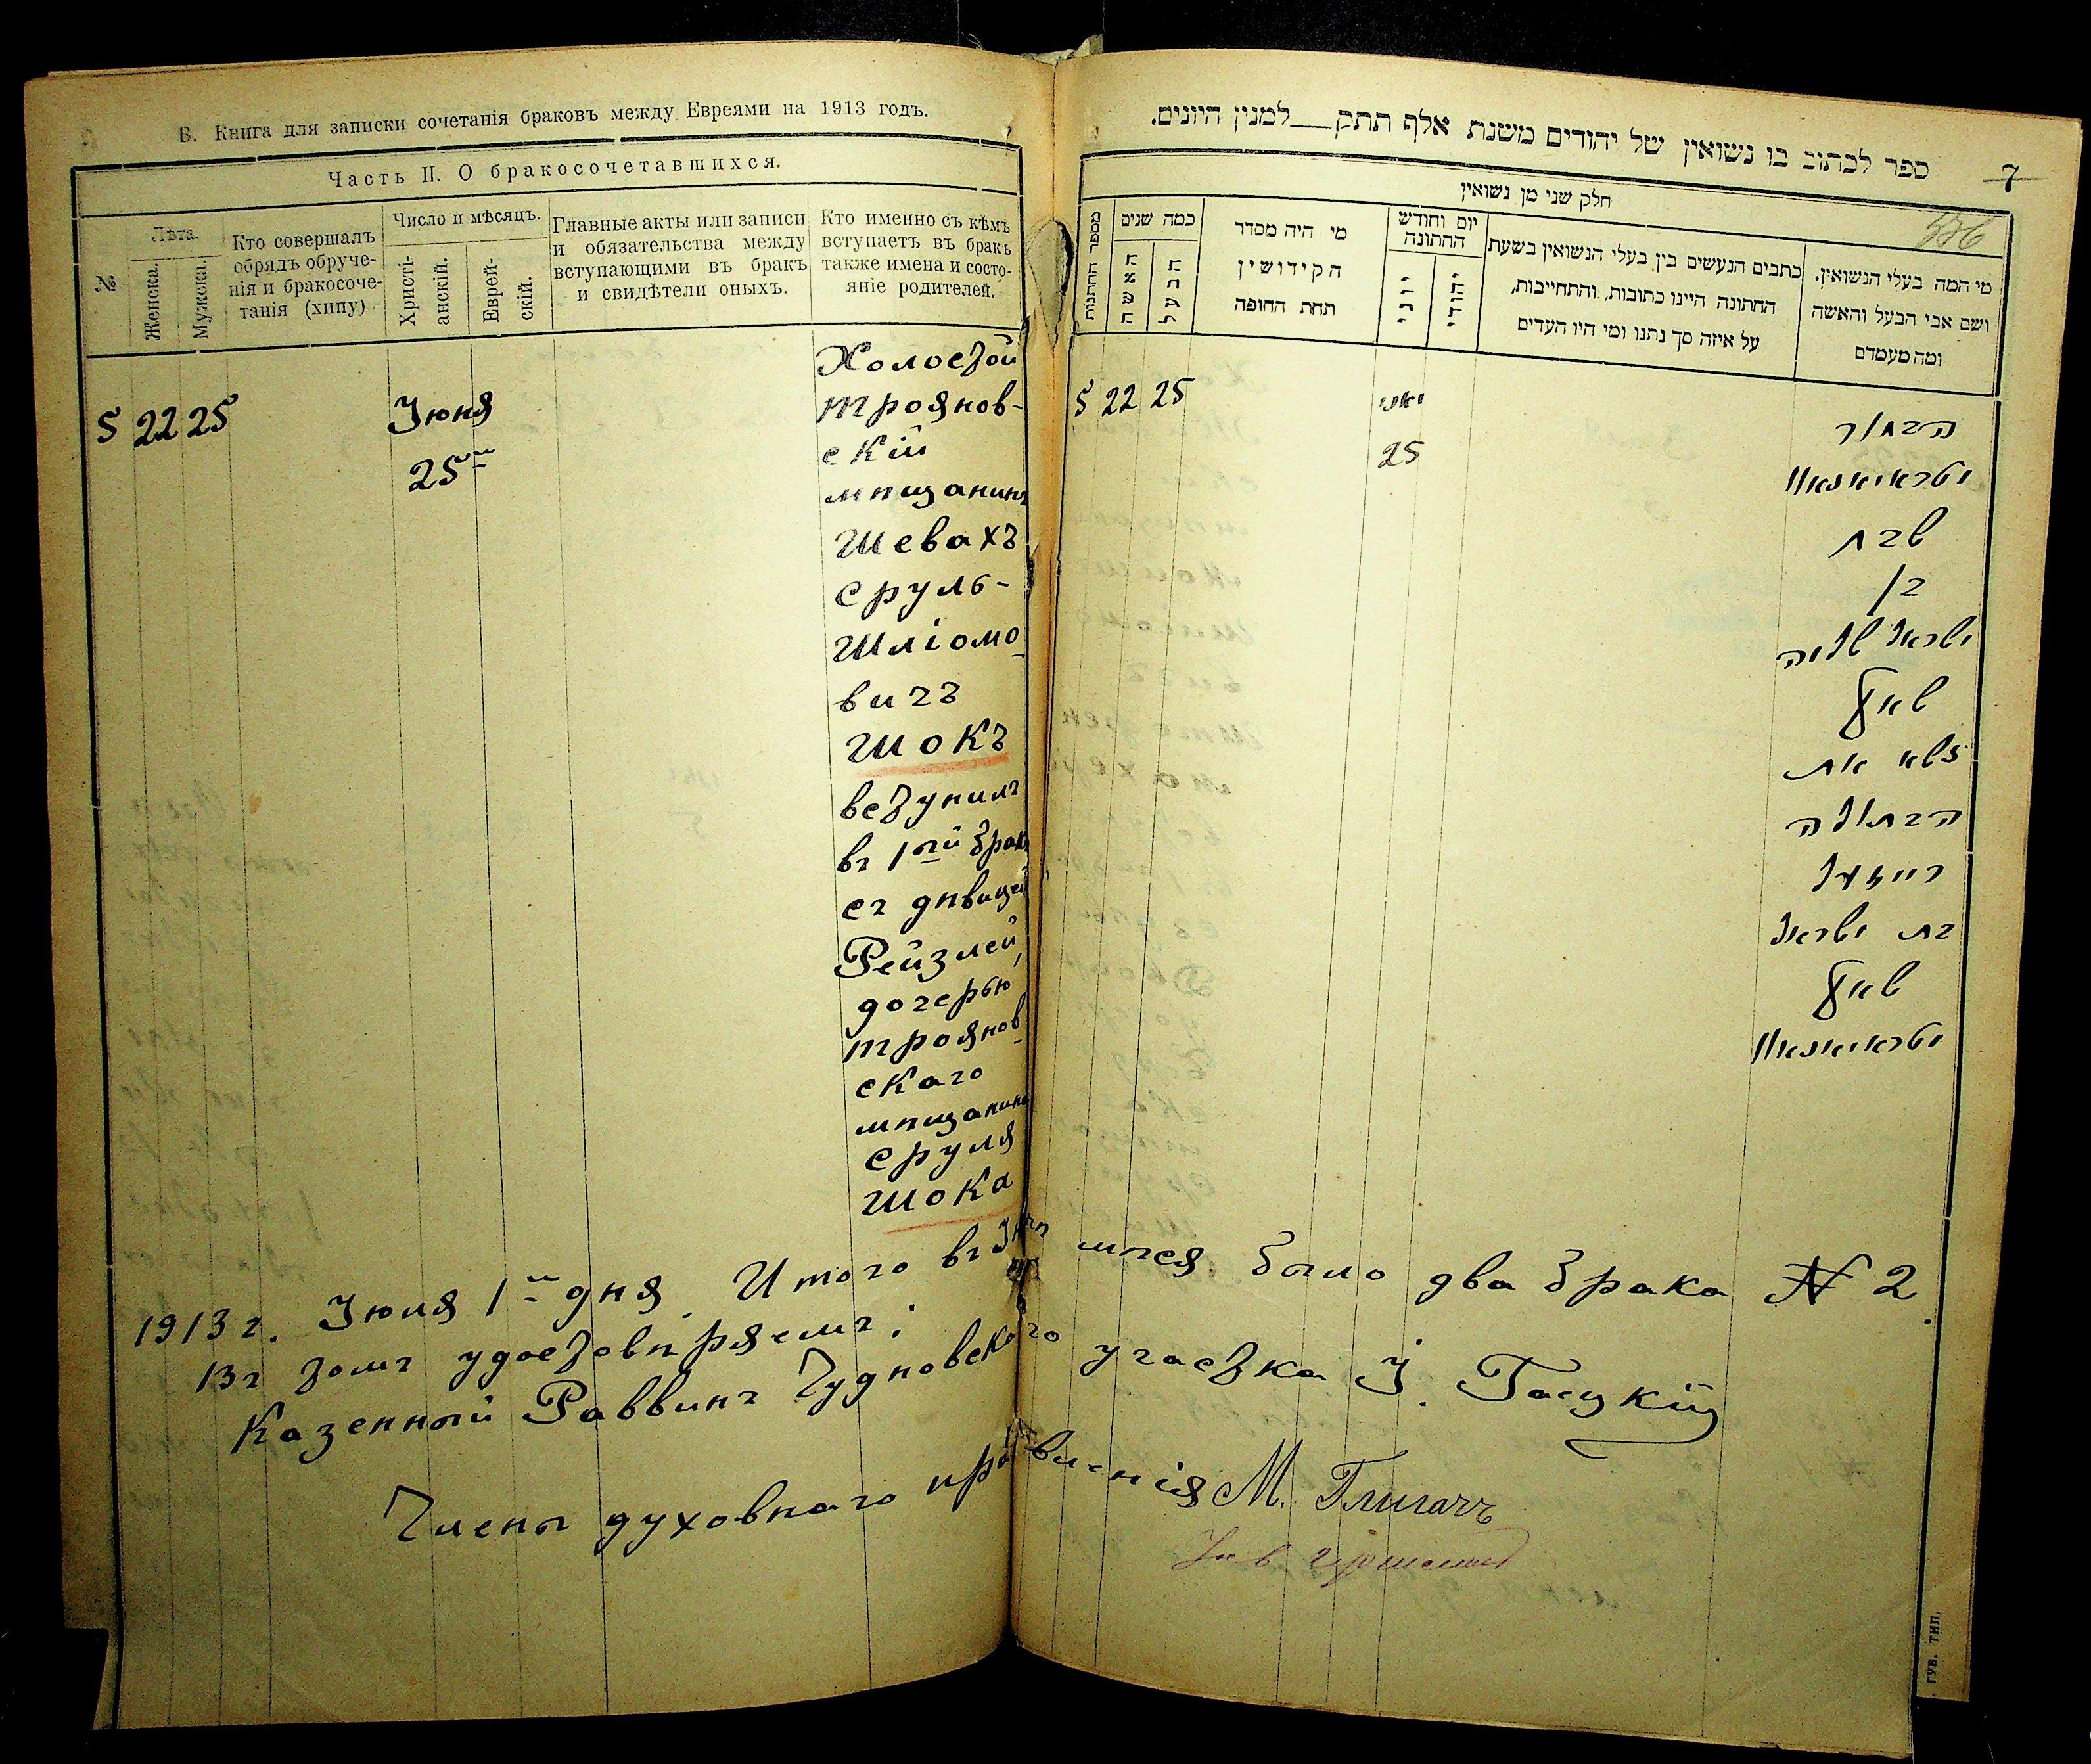 В. Книга для записки сочетанія браковъ между Евреями на 1913 годъ.
Часть II. О бракосочетавшихся.
№
Лѣта.
Женска.
Мужска.
Кто совершалъ
обрядъ обруче-
нія и бракосоче-
танія (хипу)
Число и мѣсяцъ.
Христі-
анскій.
Еврей-
скій.
Главные акты или записи
и обязательства между
вступающими въ бракъ
и свидѣтели оныхъ.
Кто именно съ кѣмъ
вступаетъ въ бракъ
также имена и состо-
яніе родителей.
5 22 25
Іюня
25
Холостой
троянов-
скій
мѣщанинъ
Шевахъ
Сруль-
Шліомо
вичъ
Шокъ
вступилъ
въ 1ый бракъ
съ дѣвицей
Рейзлей,
дочерью
троянов
скаго
мѣщанина
Сруля
Шока
ספר לכתוב בו נשואין של יהודים משנת אלף תתק___למנין היונים.
7
חלק שני מן נשואין
מספר החתונות
כמה שנים
האשה
הבעל
מי היה מסדר
הקידושין
תחת החופה
יום וחודש
החתונה
יוני
יהודי
כתבים הנעשים בין בעלי הנשואין בשעת
החתונה היינו כתובות, והתחייבות,
על איזה סך נתנו ומי היו העדים
מי המה בעלי הנשואין.
ושם אבי הבעל והאשה
ומה מעמדם
5 22 25
יוני
25
הבחור
שבח
בן
ישראל שלמה
שאק
נשא את
הבתולה
רייזעל
בת ישראל
שאק
1913 г. Іюля 1 дня. Итого въ Іюнѣ мѣся. было два брака № 2.
въ томъ удостовѣряемъ:
Казенный Раввинъ Чудновскаго участка І. Гацкій
Члены духовнаго правленія М.
ГУБ. ТИП.